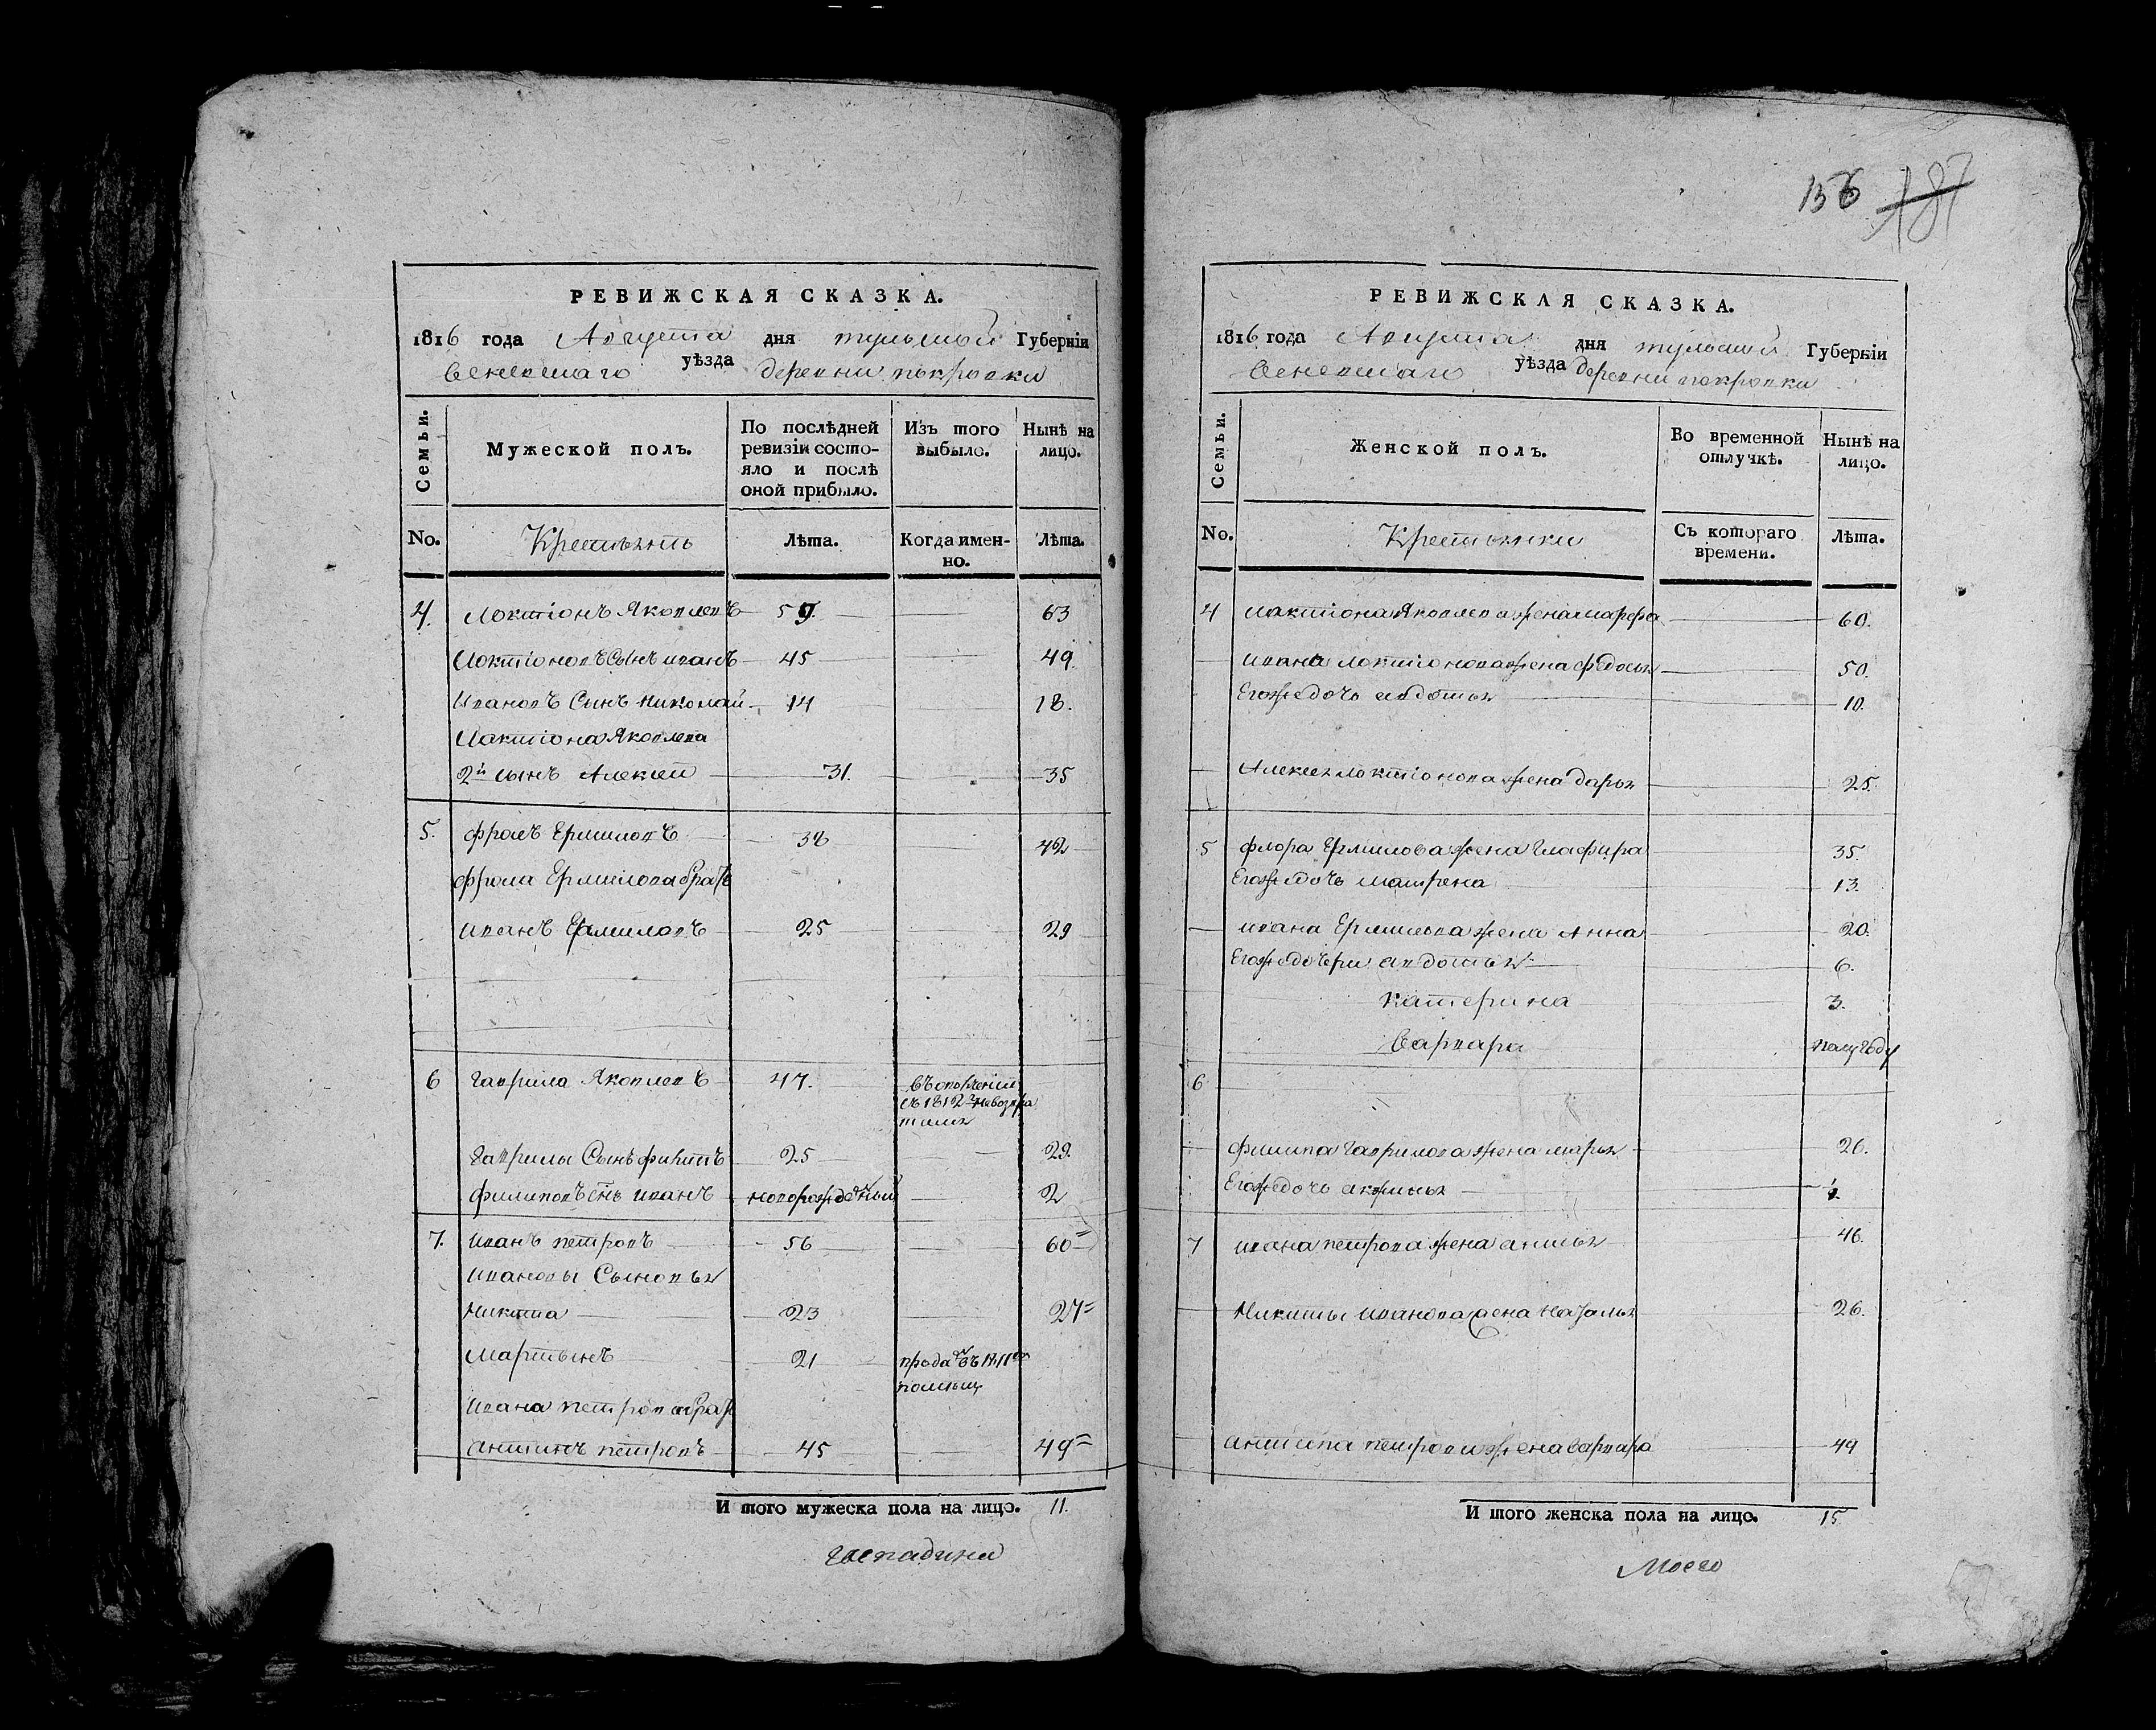 156 187
РЕВИЖСКАЯ СКАЗКА.
1816 года Августа дня тульской Губерніи
Веневскаго уѣзда деревни покровки
Семьи.
Мужеской полъ.
По послѣдней ревизіи состояло и послѣ оной прибыло.
Изъ того выбыло.
Нынѣ на лицо.
No. Крестьянъ Лѣта. Когда именно. Лѣта.
4. Локтіонъ Яковлевъ 59. 63
Локтіоновъ Сынъ иванъ 45 49
Ивановъ Сынъ николай 14 18.
Лактіона Яковлева
2й сынъ Алексей 31. 35
5. фролъ Ермиловъ 38 42
фрола Ермилова братъ
иванъ Ермиловъ 25 29
6 гаврила Яковлевъ 47. въ ополченіи
съ 1812 г невозвра
тился
гаврилы Сынъ филипъ 25 29.
филиповъ снъ иванъ новорожденный 2
7. иванъ петровъ 56 60
ивановы Сыновья
Никита 23 27
мартынъ 21 проданъ въ 1811
помѣщ
ивана петрова братъ
антипъ петровъ 45 49
И того мужеска пола на лицо. 11.
Гаспадина
РЕВИЖСКАЯ СКАЗКА.
1816 года Августа дня тульской Губерніи
Веневскаго уѣзда деревни покровки
Семьи.
Женской полъ.
Во временной отлучкѣ.
Нынѣ на лицо.
No. Крестьянки Съ котораго времени. Лѣта.
4 лактіона Яковлева жена марфа 60.
ивана локтіонова жена федосья 50.
Егожедочь авдотья 10.
Алексея локтіонова жена дарья 25.
5 флора Ермилова жена Глафира 35.
Егожедочь матрена 13.
ивана Ермилова жена Анна 20.
Егожедочери авдотья 6.
катерина 3.
варвара полугоду
6
филипа гаврилова жена марья 26.
Егожедочь аксинья
7 ивана петрова жена анисья 46.
Никиты иванова жена наталья 26.
антипа петрова жена варвара 49
И того женска пола на лицо. 15
Моего